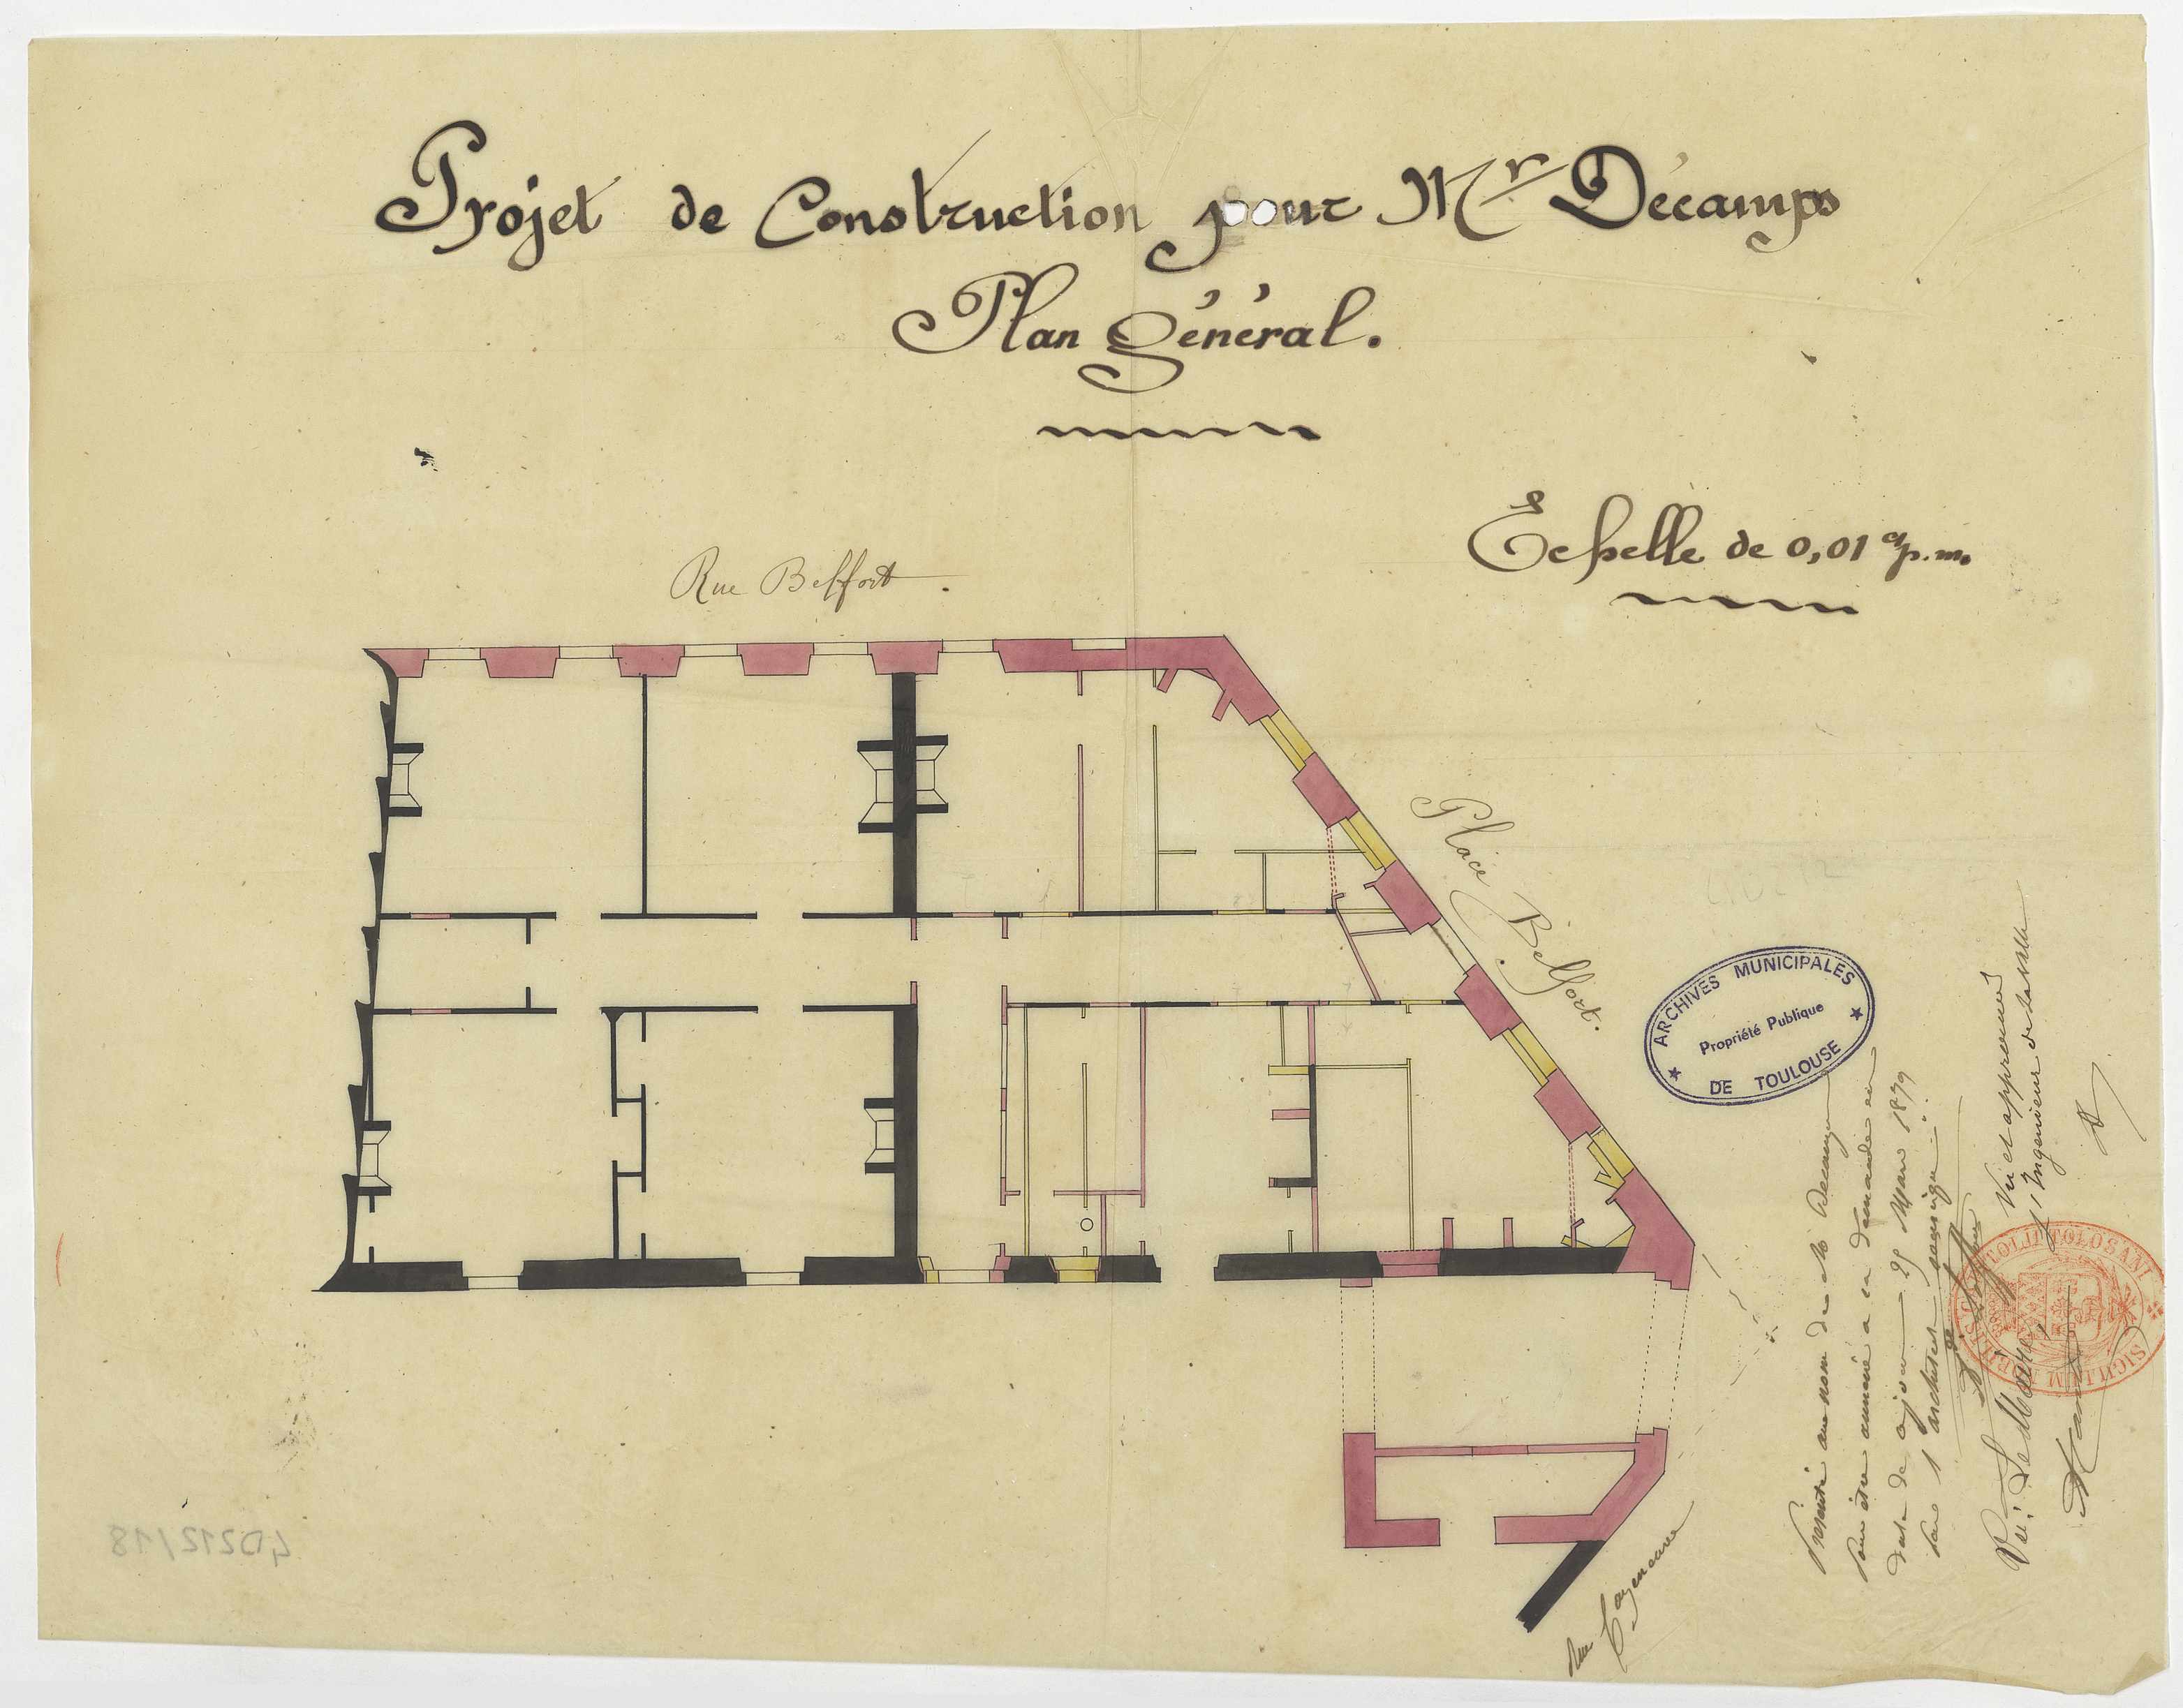 Projet de Construction pour Mr Décamps
Plan Général.
Echelle de 0,01 c/p.m.
Rue Belfort.
Place Belfort.
ARCHIVES MUNICIPALES
Propriété Publique
DE TOULOUSE
Présenté au nom de Mr Decamps
pour être annexé à sa demande en
date de ce jour 29 Mars 1879
par l'architecte soussigné
Vu et approuvé
l'Ingénieur de la ville
Vu: Le Maire,
Rue Cazeneuve
SIGILLUM NOBILIS CAPITOLII TOLOSANI
4D212/18